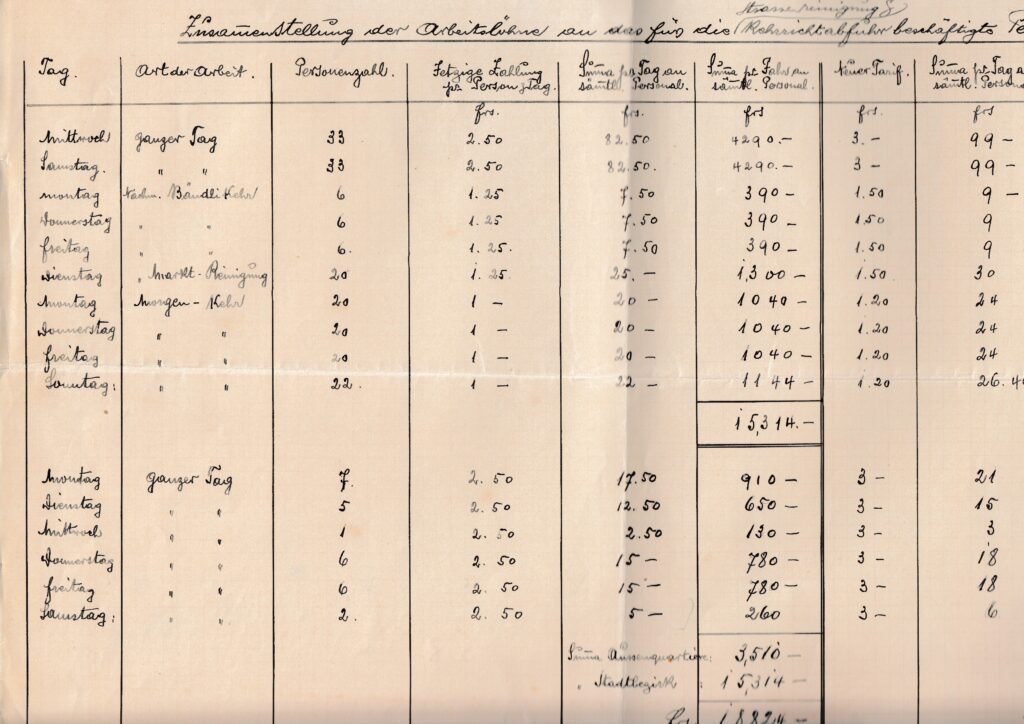 Strassenreinigung &
Zusammenstellung der Arbeitslöhne an das für die Kehrichtabfuhr beschäftigte Pe
Tag. Art der Arbeit. Personenzahl. Jetzige Zahlung Summa pr. Tag an Summa pr. Jahr an Neuer Tarif. Summa pr. Tag a
pr. Person & Tag. sämtl. Personal. sämtl. Personal. sämtl. Persona
frs. frs. frs frs
Mittwoch ganzer Tag 33 2.50 82.50 4290.— 3.— 99 —
Samstag. " " 33 2.50 82.50. 4290.— 3 — 99 —
Montag Nachm. Bändli Kehr 6 1.25 7.50 390 — 1.50 9 —
Donnerstag " " 6 1.25 7.50 390 — 1.50 9
Freitag " " 6. 1.25. 7.50 390 — 1.50 9
Dienstag " Markt-Reinigung 20 1.25 25.— 1,300 — 1.50 30
Montag Morgen-Kehr 20 1 — 20 — 1040 — 1.20 24
Donnerstag " " 20 1 — 20 — 1040 — 1.20 24
Freitag " " 20 1 — 20 — 1040 — 1.20 24
Sonntag: " " 22. 1 — 22 — 1144 — 1.20 26.40
15,314.—
Montag ganzer Tag 7. 2.50 17.50 910 — 3 — 21
Dienstag " " 5 2.50 12.50 650 — 3 — 15
Mittwoch " " 1 2.50 2.50 130 — 3 — 3
Donnerstag " " 6 2.50 15 — 780 — 3 — 18
Freitag " " 6 2.50 15 — 780 — 3 — 18
Samstag: " " 2. 2.50 5 — 260 3 — 6
Summa Aussenquartiere: 3,510 —
" Stadtbezirk : 15,314 —
frs 18824 —